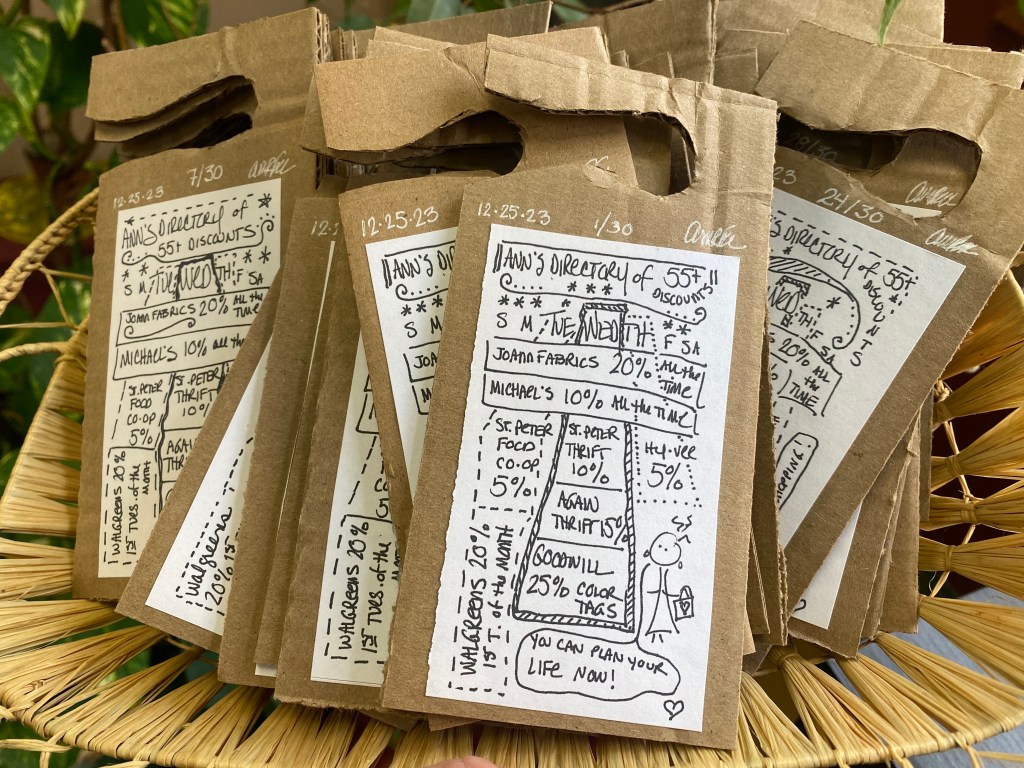 12.25.23 7/30
ANN'S DIRECTORY of
55+ DISCOUNTS
S M TUE WED TH F SA
JOANN FABRICS 20% All the TIME
MICHAEL'S 10% all the
ST. PETER FOOD CO-OP 5%
ST. PETER THRIFT 10%
AGAIN THR
WALGREENS 20% 1ST TUES. of the MONTH
12.
Walgreens
20%
1S
12.25.23
ANN'S D
S M
JOA
M
WALGREENS 20%
1ST TUES of the
12.25.23 1/30
ANN'S DIRECTORY of 55+
DISCOUNTS
S M TUE WED TH F SA
JOANN FABRICS 20% All the TIME
MICHAEL'S 10% All the TIME
ST. PETER FOOD CO-OP 5%
ST. PETER THRIFT 10%
AGAIN THRIFT 15%
GOODWILL 25% COLOR TAGS
Hy-Vee 5%
WALGREENS 20%
1ST T. of the MONTH
YOU CAN PLAN YOUR
LIFE NOW!
23 24/30
'S DIRECTORY of 55+
DISCOUNTS
WED TH F SA
20% All the TIME
HOPPING!